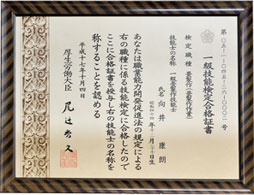 一級技能検定合格証書
検定職種 畳製作(畳製作作業)
技能士の名称 一級畳製作技能士
氏名 向井 康朗
あなたは職業能力開発促進法の規定による
右の職種に係る技能検定に合格したので
ここに合格証書を授与し右の技能士の名称を
称することを認める
平成十七年十月四日
厚生労働大臣 尾辻秀久